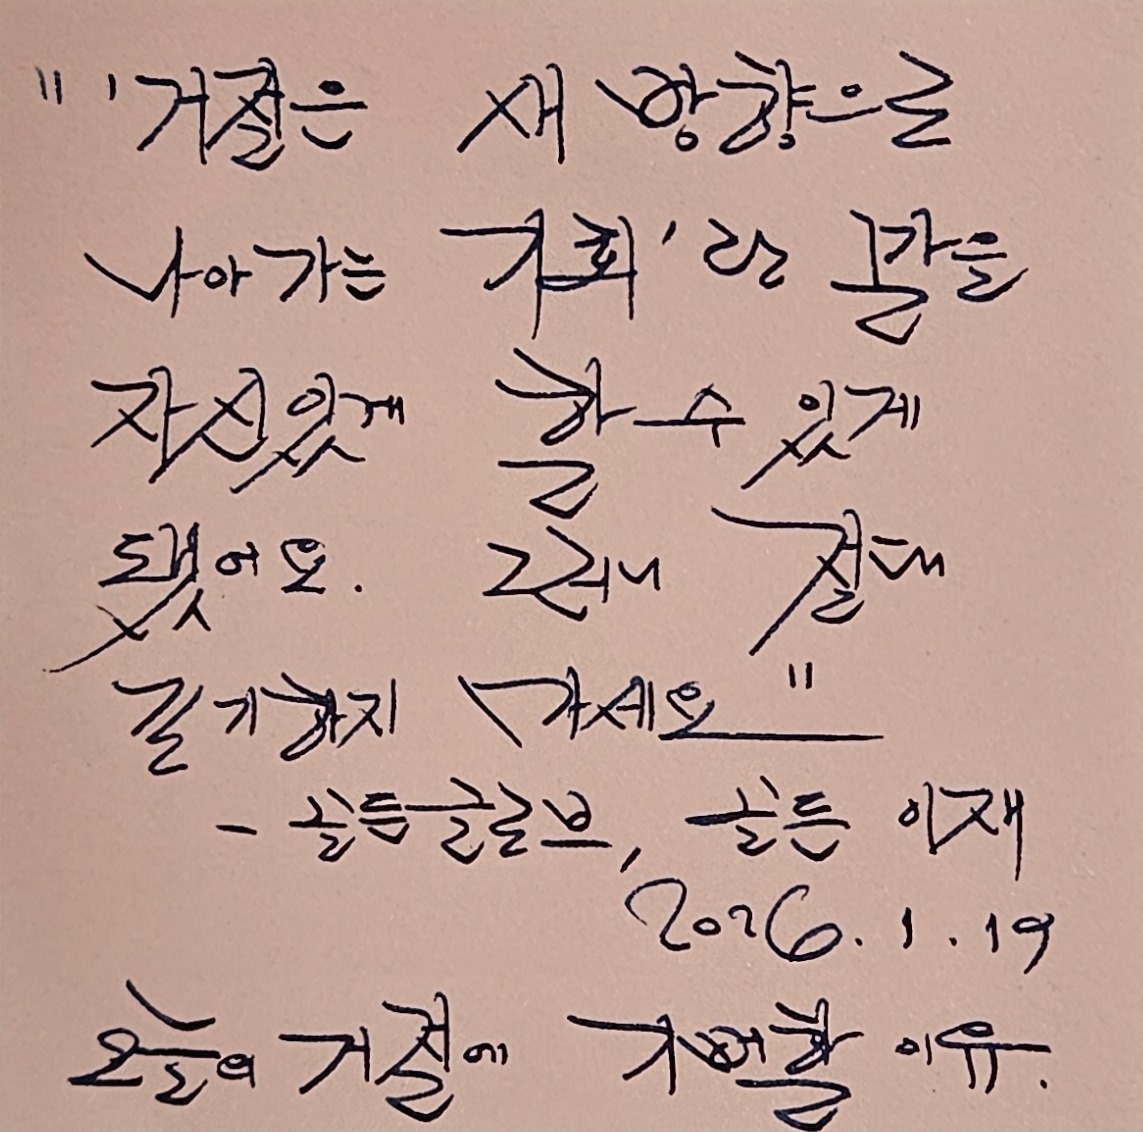 " '거절은 새 방향으로
나아가는 기회'란 말을
자신있게 할 수 있게
됐어요. 그러니 절대
포기하지 마세요"
- 골든글로브, 골든 이재
2026.1.19
오늘의 거절에 기뻐할 이유.